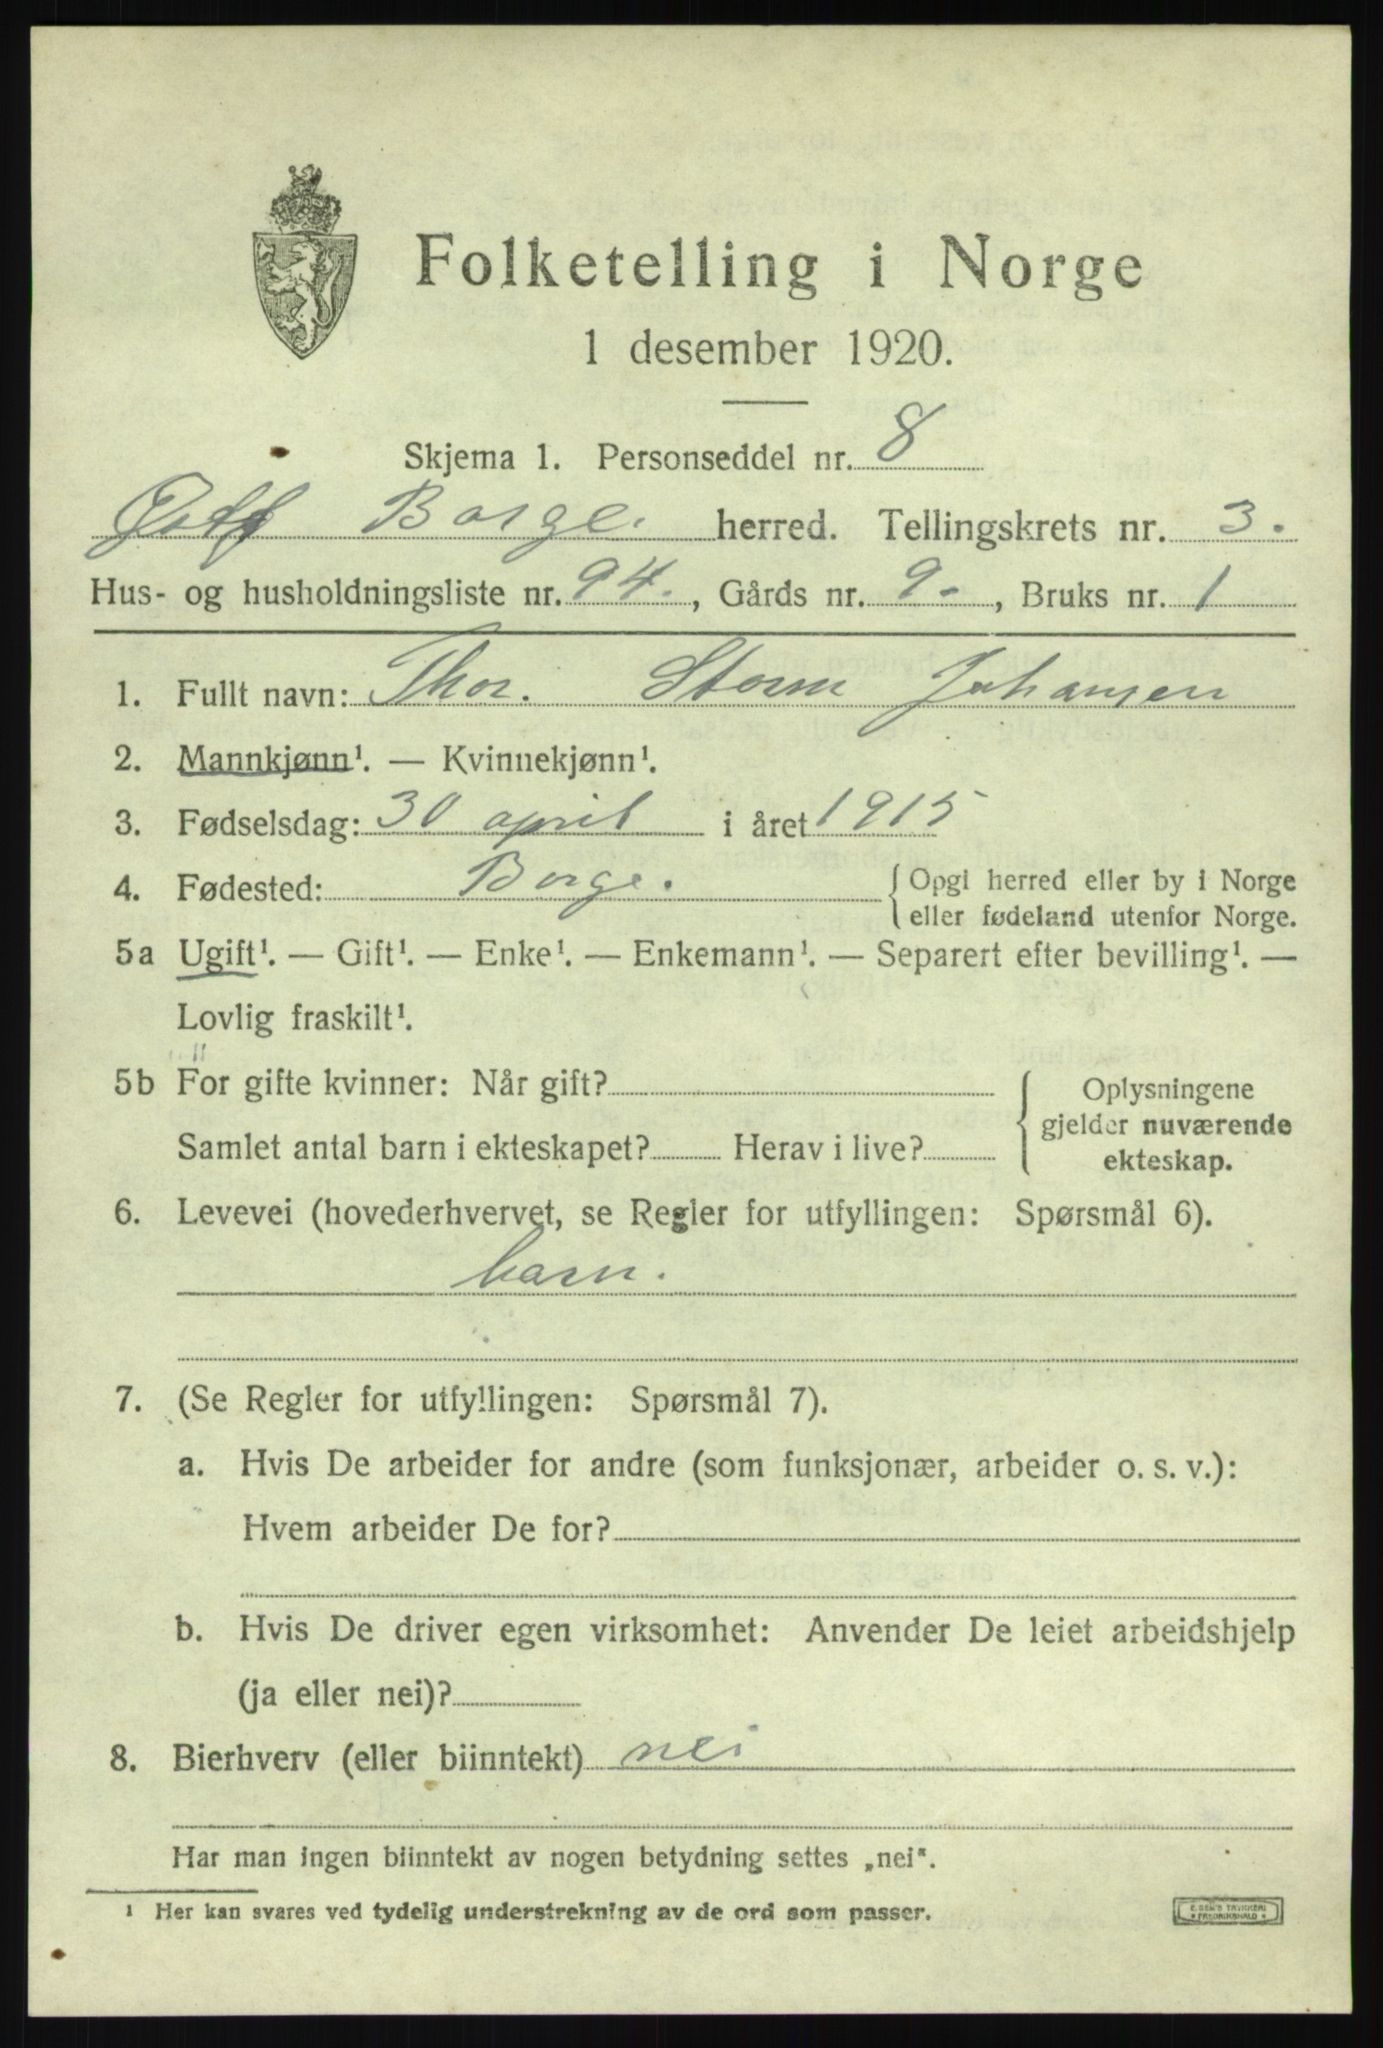 Folketelling i Norge
1 desember 1920.
Skjema 1. Personseddel nr. 8
Østf Borge. herred. Tellingskrets nr. 3.
Hus- og husholdningsliste nr. 94., Gårds nr. 9-, Bruks nr. 1
1. Fullt navn: Thor. Storm Johansen
2. Mannkjønn¹. — Kvinnekjønn¹.
3. Fødselsdag: 30 april i året 1915
4. Fødested: Borge. { Opgi herred eller by i Norge
eller fødeland utenfor Norge.
5a Ugift¹. — Gift¹. — Enke¹. — Enkemann¹. — Separert efter bevilling¹. —
Lovlig fraskilt¹.
5b For gifte kvinner: Når gift? { Oplysningene
gjelder nuværende
Samlet antal barn i ekteskapet? Herav i live?
ekteskap.
6. Levevei (hovederhvervet, se Regler for utfyllingen: Spørsmål 6).
barn.
7. (Se Regler for utfyllingen: Spørsmål 7).
a. Hvis De arbeider for andre (som funksjonær, arbeider o. s. v.):
Hvem arbeider De for?
b. Hvis De driver egen virksomhet: Anvender De leiet arbeidshjelp
(ja eller nei)?
8. Bierhverv (eller biinntekt) nei
Har man ingen biinntekt av nogen betydning settes „nei".
¹ Her kan svares ved tydelig understrekning av de ord som passer.